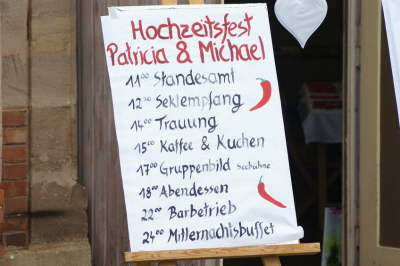 Hochzeitsfest
Patricia & Michael
11⁰⁰ Standesamt
12³⁰ Sektempfang
14⁰⁰ Trauung
15⁰⁰ Kaffee & Kuchen
17⁰⁰ Gruppenbild Seebühne
18⁰⁰ Abendessen
22⁰⁰ Barbetrieb
24⁰⁰ Mitternachtsbuffet